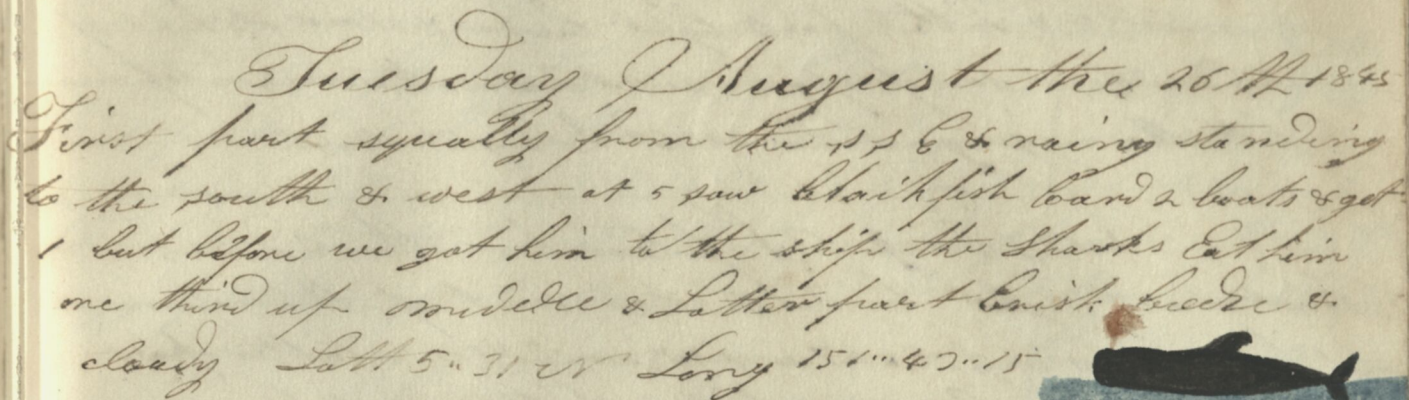 Tuesday August the 26th 1845
First part squally from the S S E & rainy standing
to the south & west at 5 saw blackfish loard 2 boats & got
1 but before we got him to the ship the Sharks Eat him
one third up middle & Latter part brisk &
cloudy Latt 5"31 N Long 151"4 "15